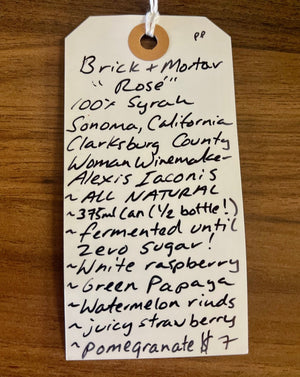 PP
Brick + Mortar
"Rosé"
100% Syrah
Sonoma, California
Clarksburg County
Woman Winemaker
Alexis Iaconis
~ ALL NATURAL
~ 375ml can (1/2 bottle!)
~ fermented until
Zero Sugar!
~ White raspberry
~ Green Papaya
~ Watermelon rinds
~ juicy strawberry
~ pomegranate $7